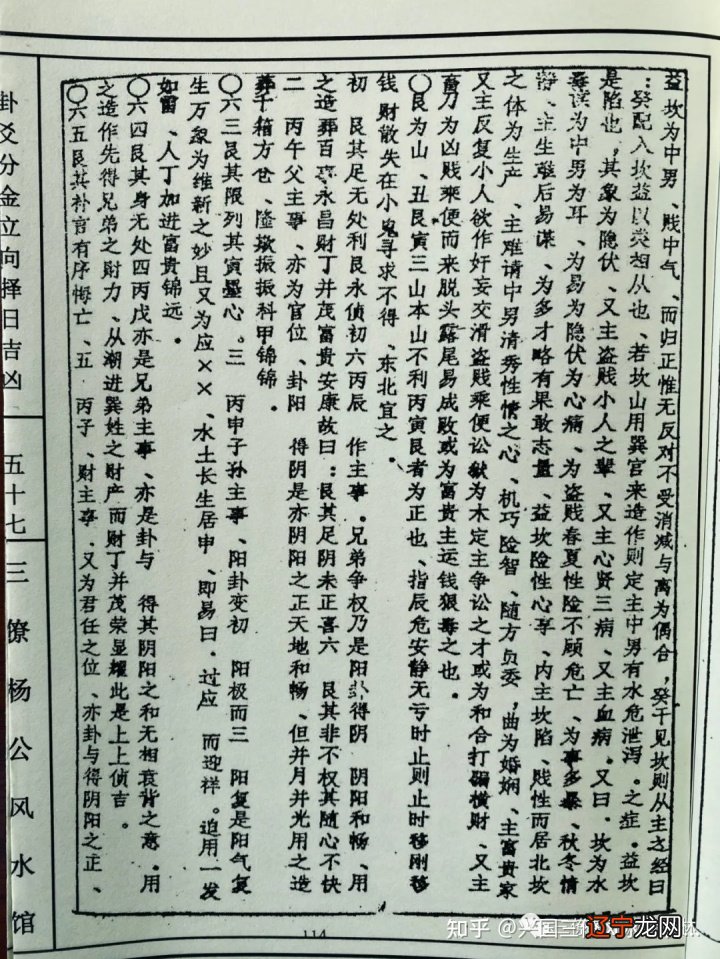 益坎为中男、贱中气、而归正惟无反对不受消减与离为偶合，癸干见坎则从主之经曰
：癸配入坎益以类相从也、若坎山用巽宫来造作则定主中男有水危泄泻。之症。益坎
是陷也，其象为隐伏、又主盗贱小人之辈、又主心贤三病、又主血病。又曰．坎为水
毒误为中男为耳、为易为隐伏为心痛、为盗贱春夏性险不顾危亡、为事多暴、秋冬情
静、主生难后易谋、为多才略有果敢志量、益坎险性心享、内主坎陷、贱性而居北坎
之体为生产、主难请中男清秀性情之心、机巧险智、随方员委，曲为婚娴、主富贵家
又主反复小人欲作奸妄交滑盗贱乘便讼狱为木定主争讼之才或为和合打骗横财、又主
畜刀为凶贱乘便而来脱头露尾易成败或为富贵主运钱狠毒之也．
〇艮为山、丑艮寅三山本山不利丙寅艮者为正也、指辰危安静无亏时止则止时移刚移
钱 财散失在小鬼寻求不得、东北宜之．
初 艮其足无处利艮永侦初六丙辰 作主事．兄弟争权乃是阳卦得阴 阴阳和畅、用
之造葬百 永昌财丁并茂富贵安康故曰：艮其足阴未正喜六 艮其非不权其随心不快
二 丙午父主事、亦为官位、卦阳 得阴是亦阴阳之正天地和畅、但并月并光用之造
葬千箱方仓、隆 振振科甲锦锦．
〇六三艮其限列其寅 心．三 丙申子孙主事、阳卦变初 阳极而三 阳复是阳气复
生万象为维新之妙且又为应××、水土长生居申、即易曰．过应 而迎祥。迫用一发
如雷、人丁加进富贵锦远．
〇六四艮其身无处四丙戌亦是兄弟主事、亦是卦与 得其阴阳之和无相 背之意．用
之造作先得兄弟之财力、从潮进巽姓之财产而财丁并茂荣显耀此是上上侦吉．
〇六五艮其补言有序悔亡、五 丙子、财主事、又为君任之位、亦卦与得阴阳之正、
卦爻分金立向择日吉凶
五十七
三僚杨公风水馆
114
知乎 @兴国三僚
辽宁龙网